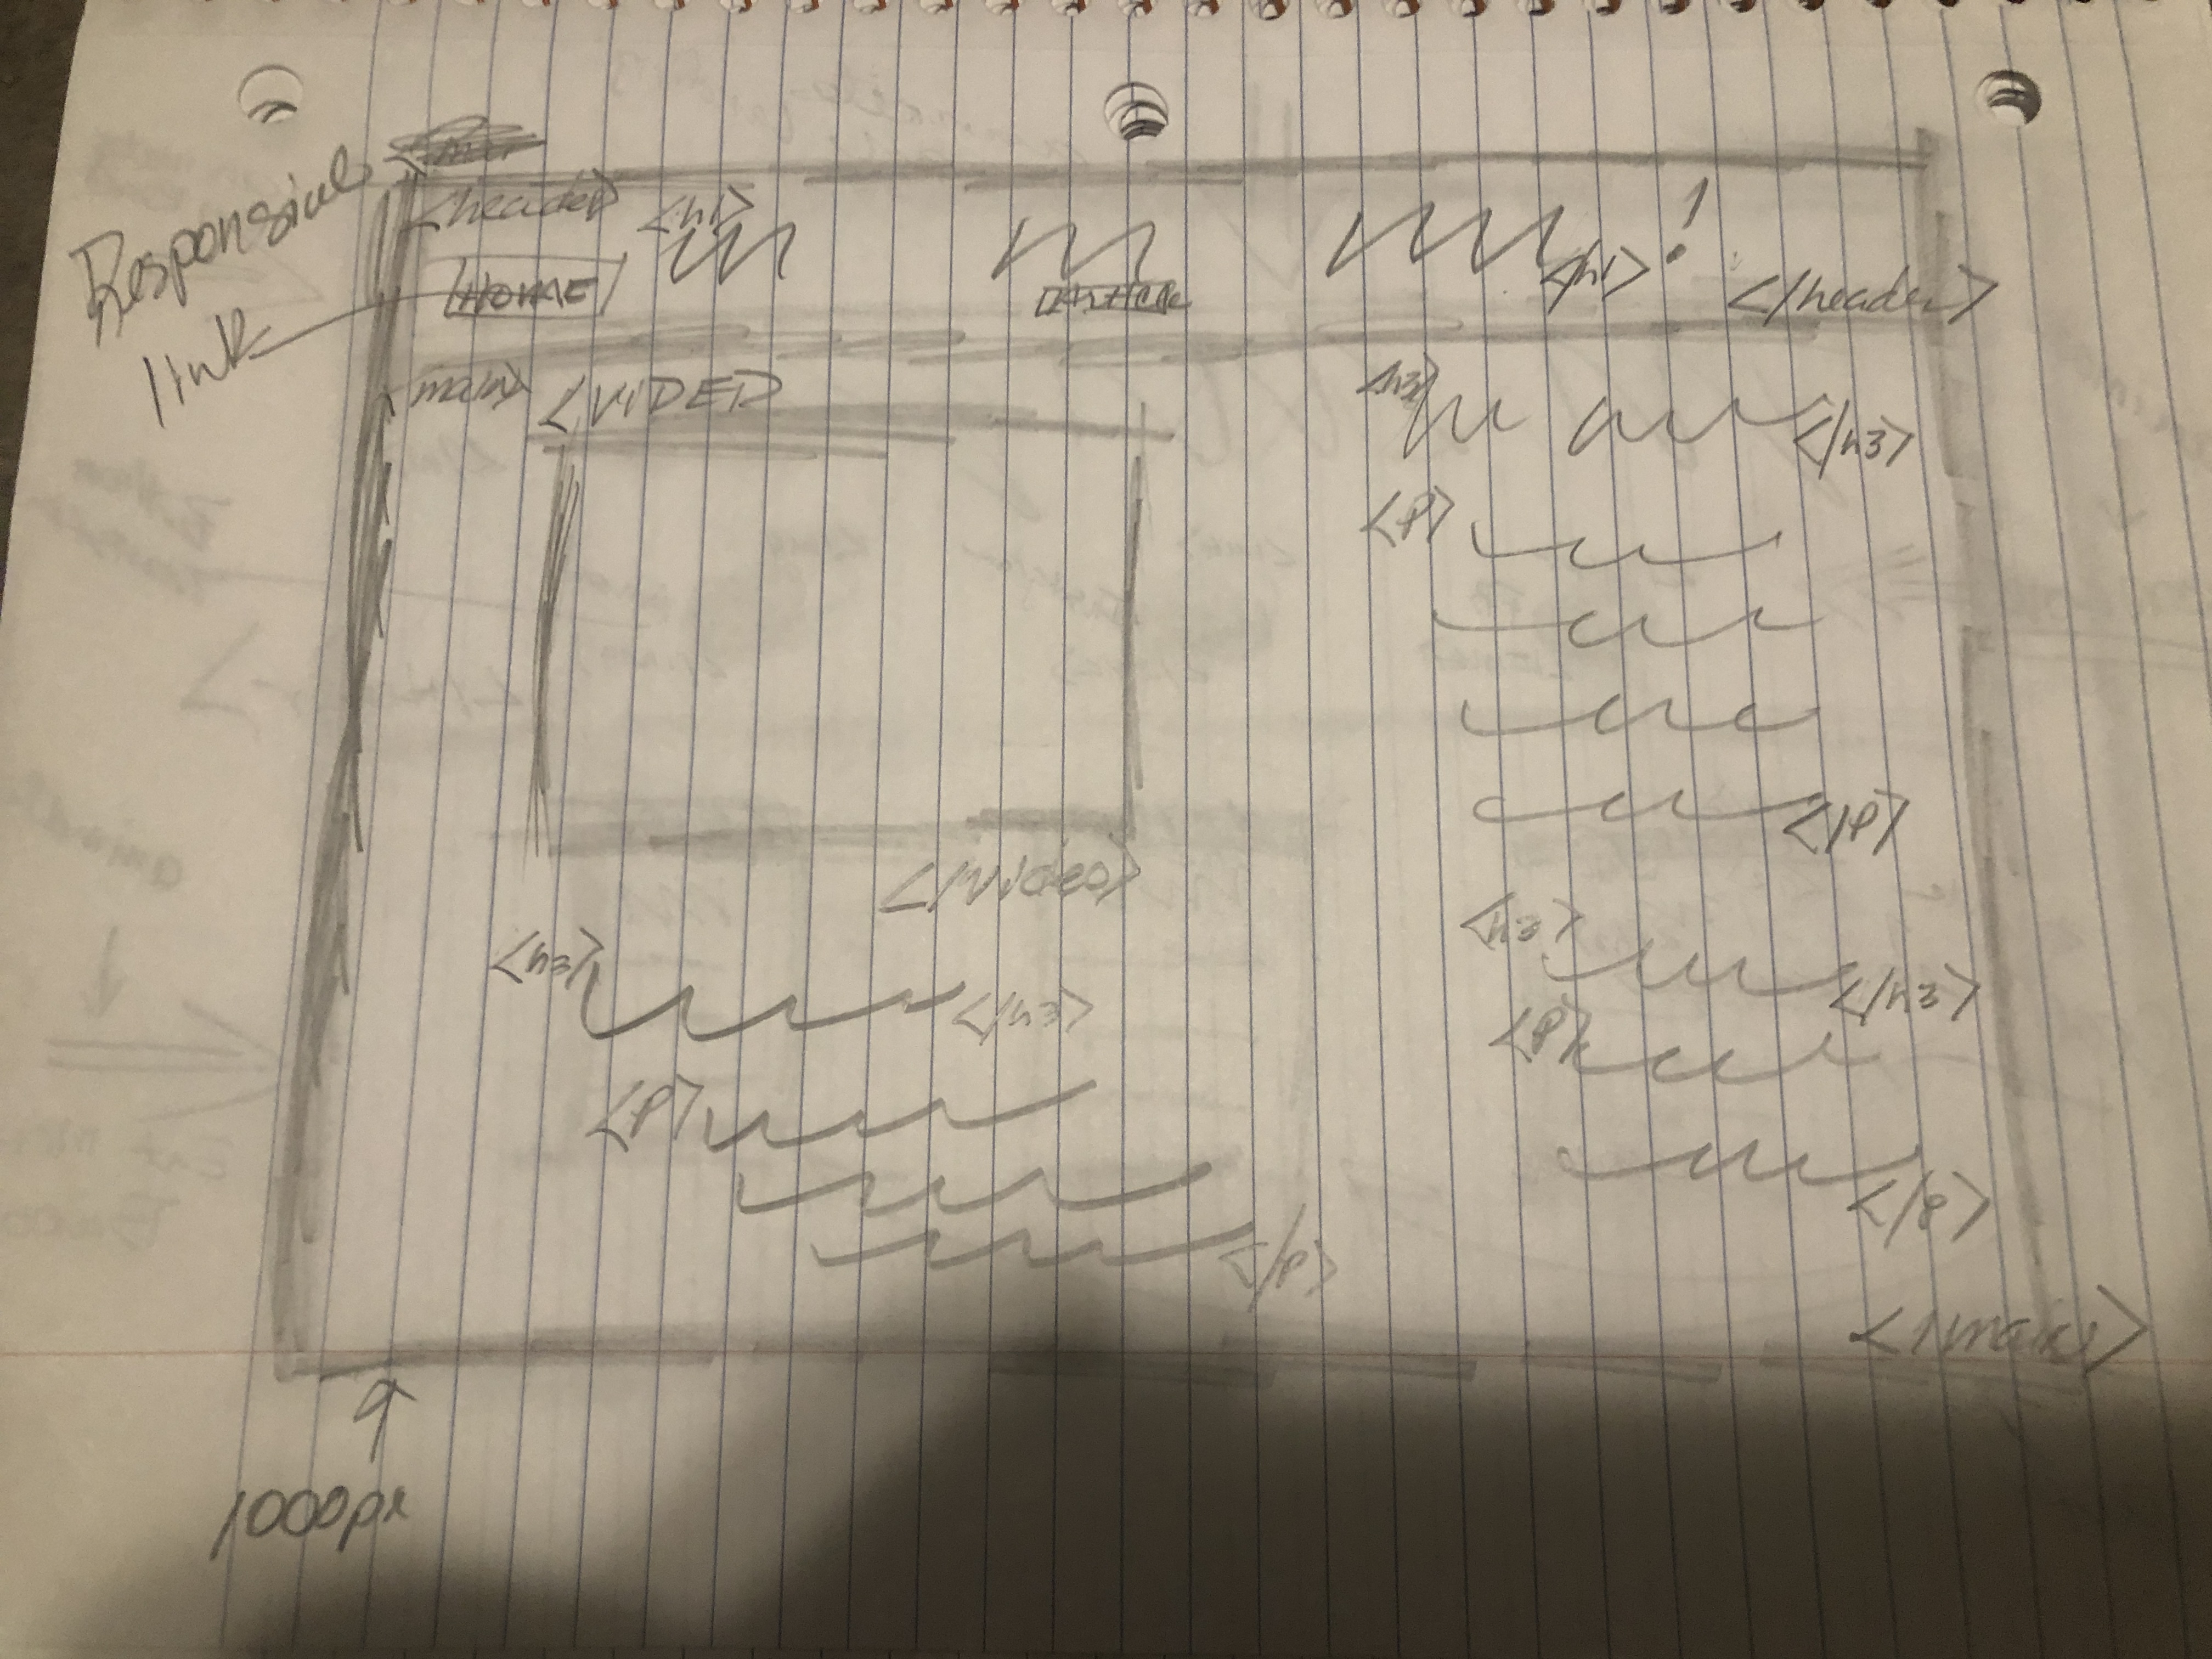 Responsive
link
<header> <h1>
HOME
</h1> ! </header>
<main> <VIDEO>
</video>
<h3>
</h3>
<p>
</p>
<h3>
</h3>
<p>
</p>
<h3>
</h3>
<p>
</p>
</main>
1000px